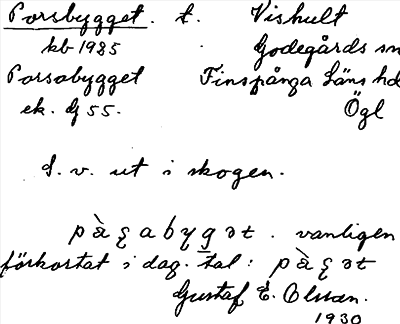 Porsbygget. t. Vishult
kb 1985 Godegårds sn
Porsabygget Finspånga läns hd
ek. Dj 55. Ögl
S. v. ut i skogen.
pàʂabygət. vanligen
förkortat i dag. tal: pàʂət
Gustaf E. Olsson.
1930